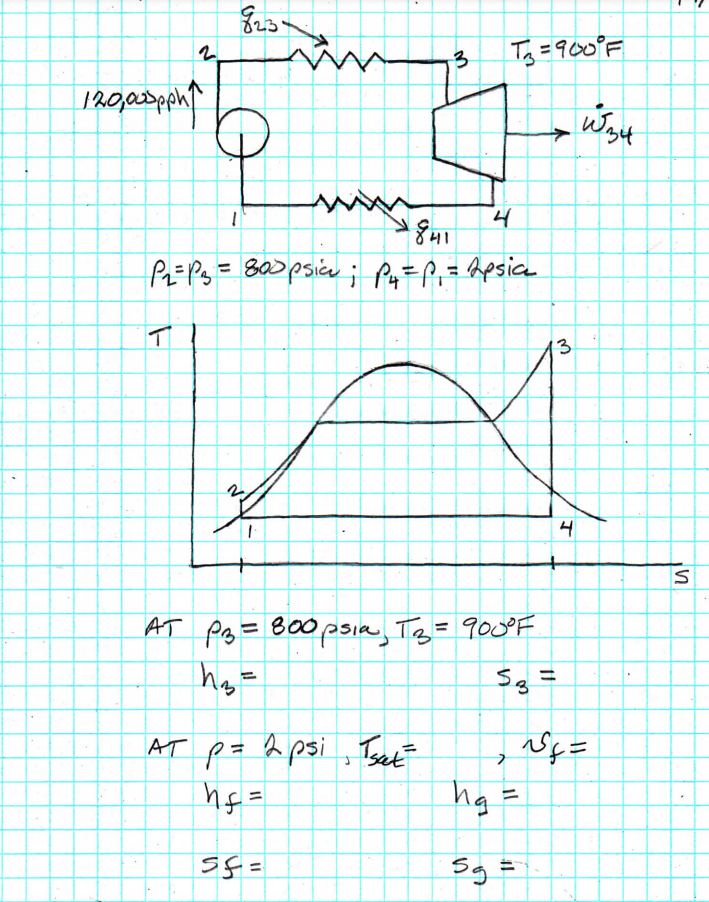 q23
2
3
T3=900°F
120,000pph
Ẇ34
1
q41
4
P2=P3= 800psia; P4=P1=2psia
T
3
2
1
4
S
AT P3= 800psia, T3= 900°F
h3= s3=
AT p= 2psi, Tsat= , vf=
hf= hg=
sf= sg=